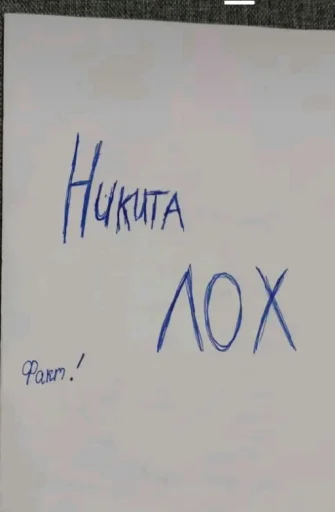 Никита
ЛОХ
Факт!